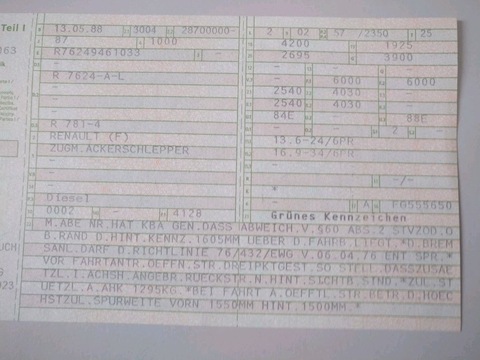 Teil I
13.05.88 3004 28700000-
2 02 57 /2350 25
163
87 1000
4200 1925
R76249461033 -
2695 3900
R 7624-A-L
- -
- 6000 6000
-
2540 4030 -
-
2540 4030 -
-
84E - 88E
R 781-4
- - 2 -
RENAULT (F)
13.6-24/6PR
ZUGM.ACKERSCHLEPPER
16.9-34/6PR
-
-
-
- -/-
-
*
Diesel
- FG555650
0002 - 4128
Grünes Kennzeichen
M.ABE NR.HAT KBA GEN.DASS ABWEICH.V.§60 ABS.2 STVZO D.
B.RAND D.HINT.KENNZ.1605MM UEBER D.FAHRB.LIEGT.*D.BREM
SANL.DARF D.RICHTLINIE 76/432/EWG V.06.04.76 ENT SPR.*
VOR FAHRTANTR.OEFFN.STR.DREIPKTGEST.SO STELL.DASSZUSAE
TZL.I.ACHSH.ANGEBR.RUECKSTR.N.HINT.SICHTB.SIND.*ZUL.ST
UETZL.A.AHK 1295KG.*BEI FAHRT A.OEFFTL.STR.BETR.D.HOEC
HSTZUL.SPURWEITE VORN 1550MM HINT.1500MM.*
UCH
023,